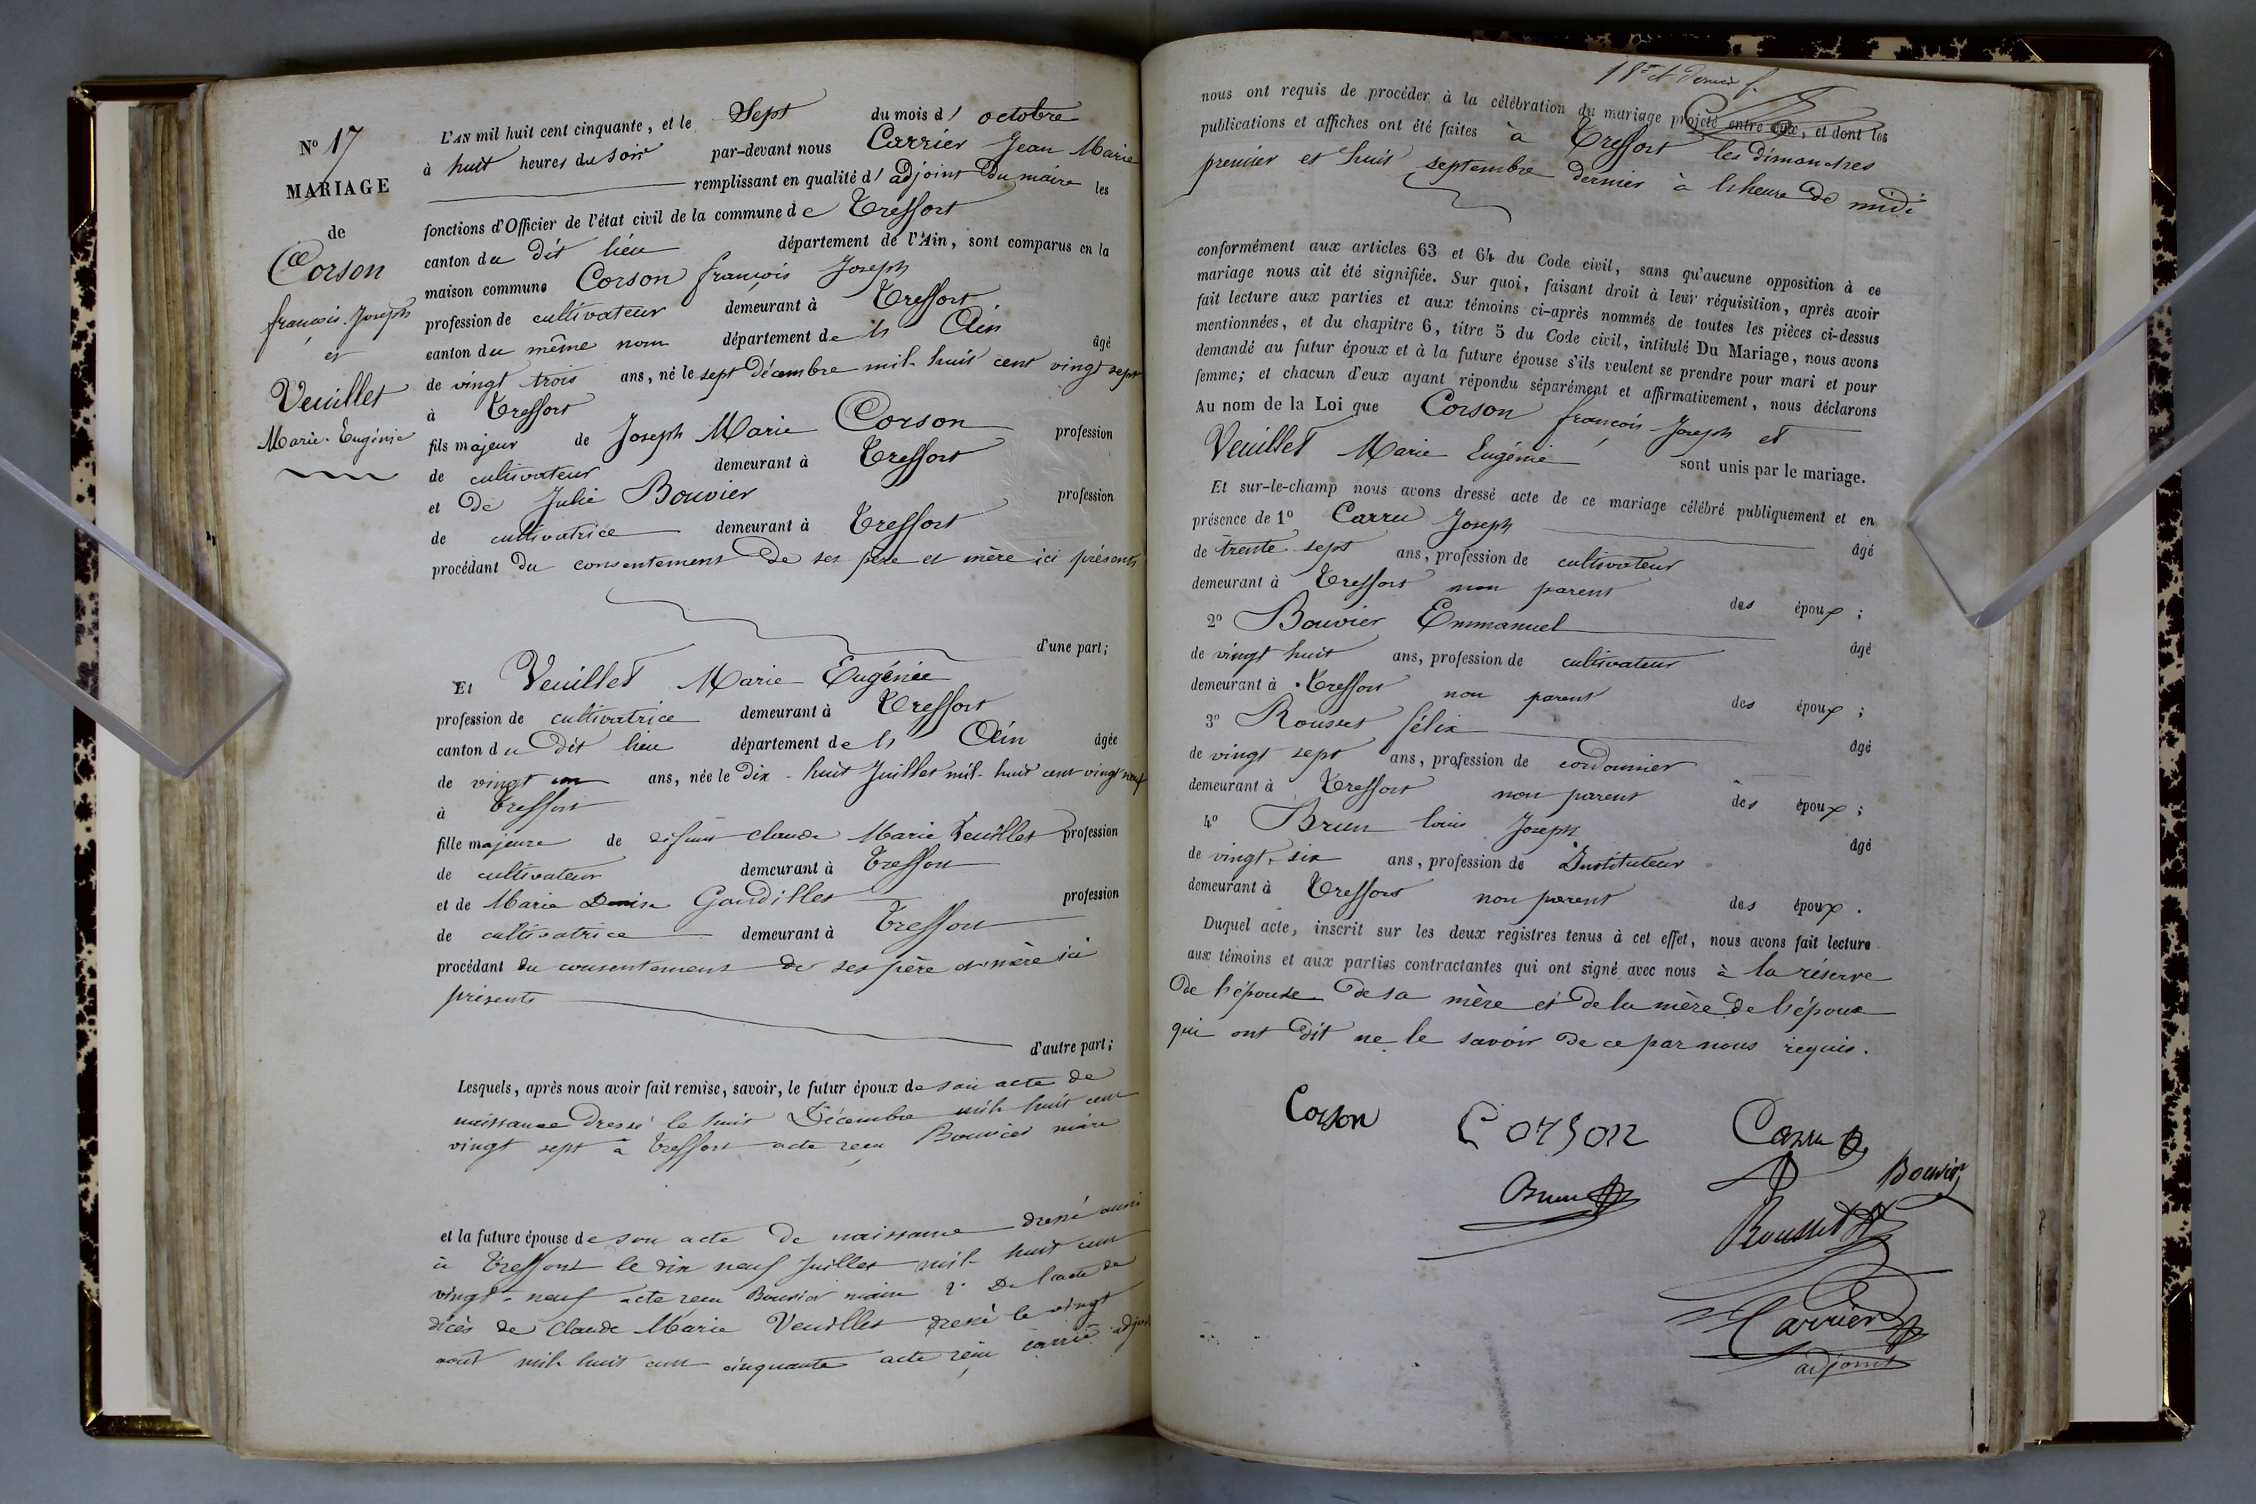 N° 17
MARIAGE
de
Corson
françois Joseph
et
Veuillet
Marie Eugénie
L'AN mil huit cent cinquante, et le Sept du mois d' octobre
à huit heures du soir par-devant nous Carrier Jean Marie
remplissant en qualité d' adjoint du maire les
fonctions d'Officier de l'état civil de la commune de Treffort
canton du dit lieu département de l'Ain, sont comparus en la
maison commune Corson françois Joseph
profession de cultivateur demeurant à Treffort
canton du même nom département de l' Ain âgé
de vingt trois ans, né le sept décembre mil huit cent vingt sept
à Treffort
fils majeur de Joseph Marie Corson profession
de cultivateur demeurant à Treffort
et de Julie Bouvier profession
de cultivatrice demeurant à Treffort
procédant du consentement de ses père et mère ici présents
d'une part;
Et Veuillet Marie Eugénie
profession de cultivatrice demeurant à Treffort
canton du dit lieu département de l' Ain âgée
de vingt un ans, née le dix-huit Juillet mil-huit cent vingt neuf
à Treffort
fille majeure de défunt Claude Marie Veuillet profession
de cultivateur demeurant à Treffort
et de Marie Denise Gaudillet profession
de cultivatrice demeurant à Treffort
procédant du consentement de ses père et mère ici
présents
d'autre part;
Lesquels, après nous avoir fait remise, savoir, le futur époux de son acte de
naissance dressé le huit Décembre mil huit cent
vingt sept à Treffort acte reçu Bouvier maire
et la future épouse de son acte de naissance dressé aussi
à Treffort le dix neuf Juillet mil huit cent
vingt-neuf acte reçu Bouvier maire 2° De l'acte de
décès de Claude Marie Veuillet dressé le vingt
août mil huit cent cinquante acte reçu Carrier adjoint
18e et dernier f.
nous ont requis de procéder à la célébration du mariage projeté entre eux, et dont les
publications et affiches ont été faites à Treffort les dimanches
premier et huit septembre dernier à l'heure de midi
conformément aux articles 63 et 64 du Code civil, sans qu'aucune opposition à ce
mariage nous ait été signifiée. Sur quoi, faisant droit à leur réquisition, après avoir
fait lecture aux parties et aux témoins ci-après nommés de toutes les pièces ci-dessus
mentionnées, et du chapitre 6, titre 5 du Code civil, intitulé Du Mariage, nous avons
demandé au futur époux et à la future épouse s'ils veulent se prendre pour mari et pour
femme; et chacun d'eux ayant répondu séparément et affirmativement, nous déclarons
Au nom de la Loi que Corson françois Joseph et
Veuillet Marie Eugénie sont unis par le mariage.
Et sur-le-champ nous avons dressé acte de ce mariage célébré publiquement et en
présence de 1° Carru Joseph âgé
de trente sept ans, profession de cultivateur
demeurant à Treffort non parent des époux;
2° Bouvier Emmanuel âgé
de vingt huit ans, profession de cultivateur
demeurant à Treffort non parent des époux;
3° Rousset félix âgé
de vingt sept ans, profession de cordonnier
demeurant à Treffort non parent des époux;
4° Brun louis Joseph âgé
de vingt-six ans, profession de Instituteur
demeurant à Treffort non parent des époux.
Duquel acte, inscrit sur les deux registres tenus à cet effet, nous avons fait lecture
aux témoins et aux parties contractantes qui ont signé avec nous à la réserve
de l'épouse de sa mère et de la mère de l'époux
qui ont dit ne le savoir de ce par nous requis.
Corson Corson Carru
Brun Bouvier
Rousset
Carrier
adjoint